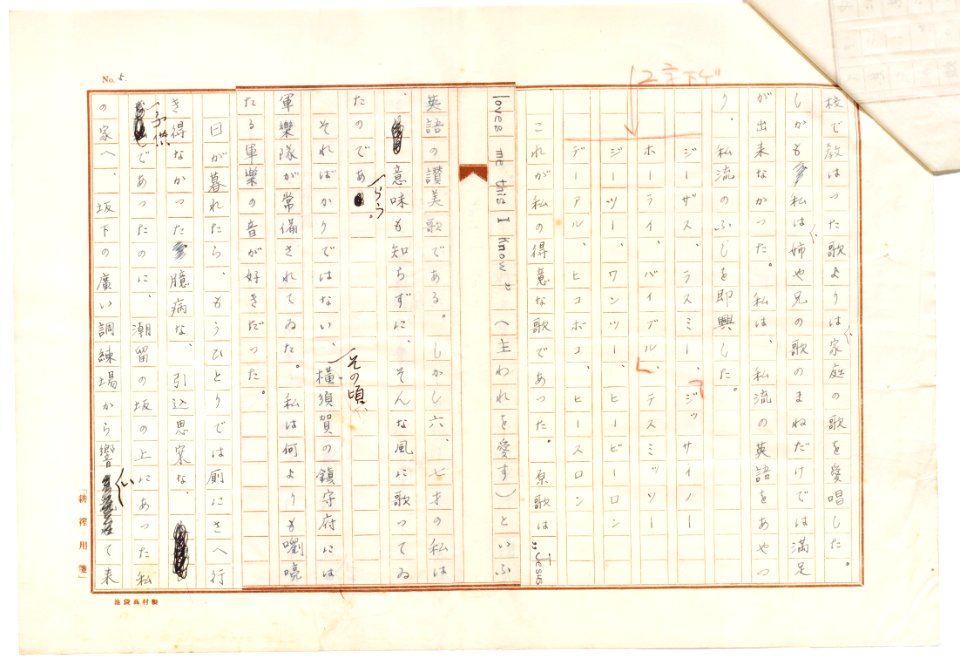 No. 5.
2字下ゲ
校で教はった歌よりは家庭の歌を愛唱した。
しかも私は姉や兄の歌のまねだけでは満足
が出来なかった。私は、私流の英語をあやつ
り、私流のふしを即興した。
ジーザス、ラスミー、ジッサイノー
ホーライ、バイブル、テスミッソー
ジーツー、ワンツー、ヒービーロン
デーアル、ヒコボコ、ヒースロン
これが私の得意な歌であった。原歌は„Jesus
loves me this I know„(主われを愛す)といふ
英語の讃美歌である。しかし六、七才の私は
、意味も知らずに、そんな風に歌ってゐ
たのであらう。
そればかりではない、その頃、横須賀の鎮守府には
軍樂隊が常備されてゐた。私は何よりも嚠喨
たる軍樂の音が好きだった。
日が暮れたら、もうひとりでは厠にさへ行
き得なかった臆病な、引込思案な
子供であったのに、潮留の坂の上にあった私
の家へ、坂下の廣い調練場から響いて来
「耕稼用箋」